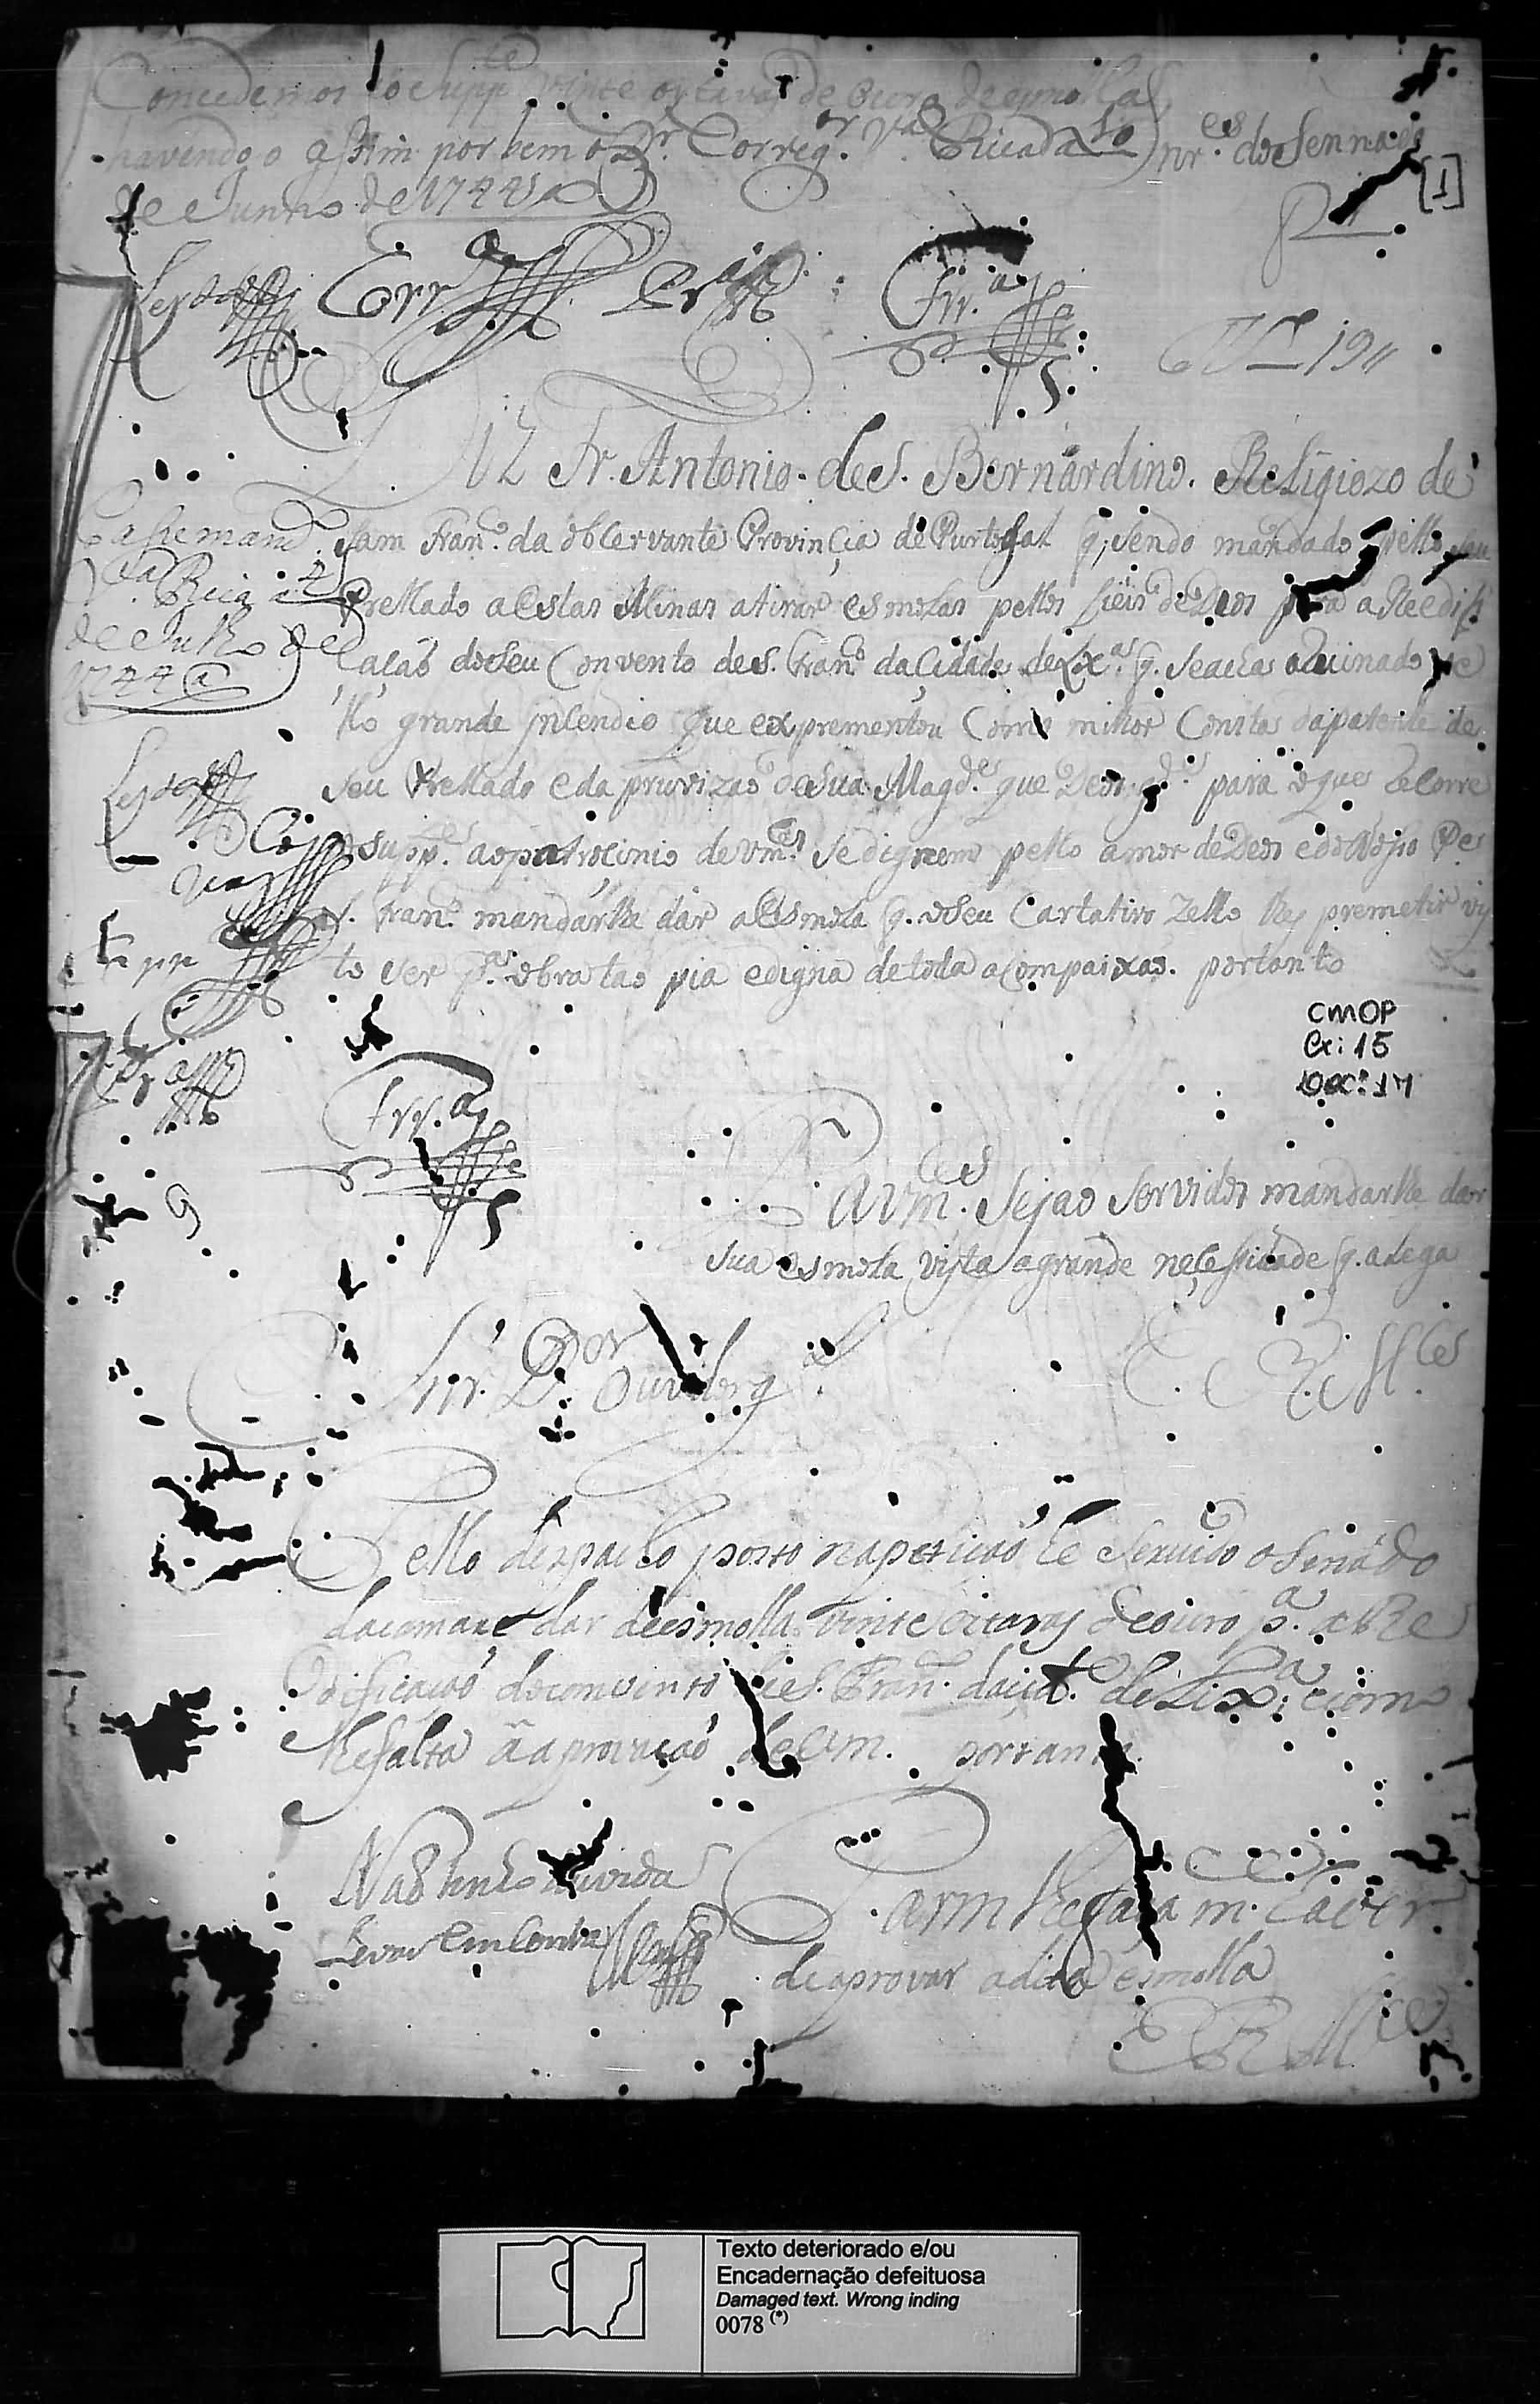 Concedemos ao Supp.te vinte oytavas de ouro de esmolla
havendo o assim por bem o Dr. Correg.or V.a Rica da
de Junho de 1744
nr.es do Sennado
[1]
Corr
Frr.a
N 19
Diz Fr. Antonio de S. Bernardino. Religiozo de
Sam Fran.co da obcervante Provincia de Purtugal q, sendo mandado pello seu
Prellado a estas Minas a tirar esmolas pellos fieis de Deos para a Reedifi
caçaõ do Seu Convento de S. Fran.co da Cidade de Lx.a q. se acha aRuinado pe
llo grande Incendio que exprementou Como milhor Consta da patente de
seu Prellado e da provizaõ de Sua Mag.de que Deos g.de para o que Recorre
o supp.te ao patrocinio de vm.ces se dignem pello amor de Deos e do Nosso P.e
S. Fran.co mandarlhe dar a Esmola q. o seu Cartativo Zello lhes premetir vis
to ser p.a obra taõ pia e digna de toda a Compaixaõ. portanto
Passe mand.o
V.a Rica a 4
de Julho de
1744
CMOP
Cx: 15
DOC: 17
Frr.a
P.
A vm.ces Sejaõ Servidos mandarlhe dar
sua esmola vista a grande necessidade q. alega
E. R. M.ce
Snr. D.or Ouvidor g.al
Pello despacho posto na petiçaõ he Servido o Senado
da camara dar de esmolla vinte oitavas de ouro p.a a Re
edificaçaõ do convento de S. Fran.co da cid.e de Lix.a e como
lhe falta a aprovaçaõ de Vm. portanto
P. a vm lhe faça m. haver
de aprovar a dita esmolla
E R M.ce
Naõ tenho duvida
Levar em Conta
Texto deteriorado e/ou
Encadernação defeituosa
Damaged text. Wrong inding
0078 (*)